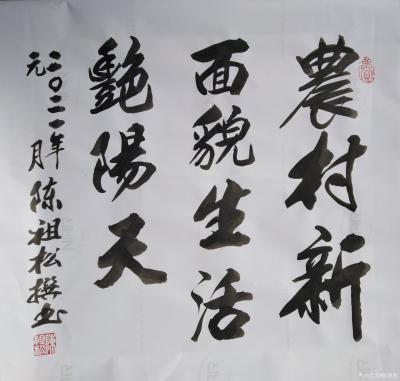 農村新
面貌生活
艷陽天
二〇二一年
元月 陈祖松撰书